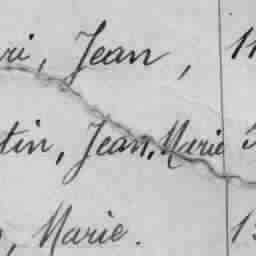 ri, Jean, 11
tin, Jean, Marie
, Marie. 13